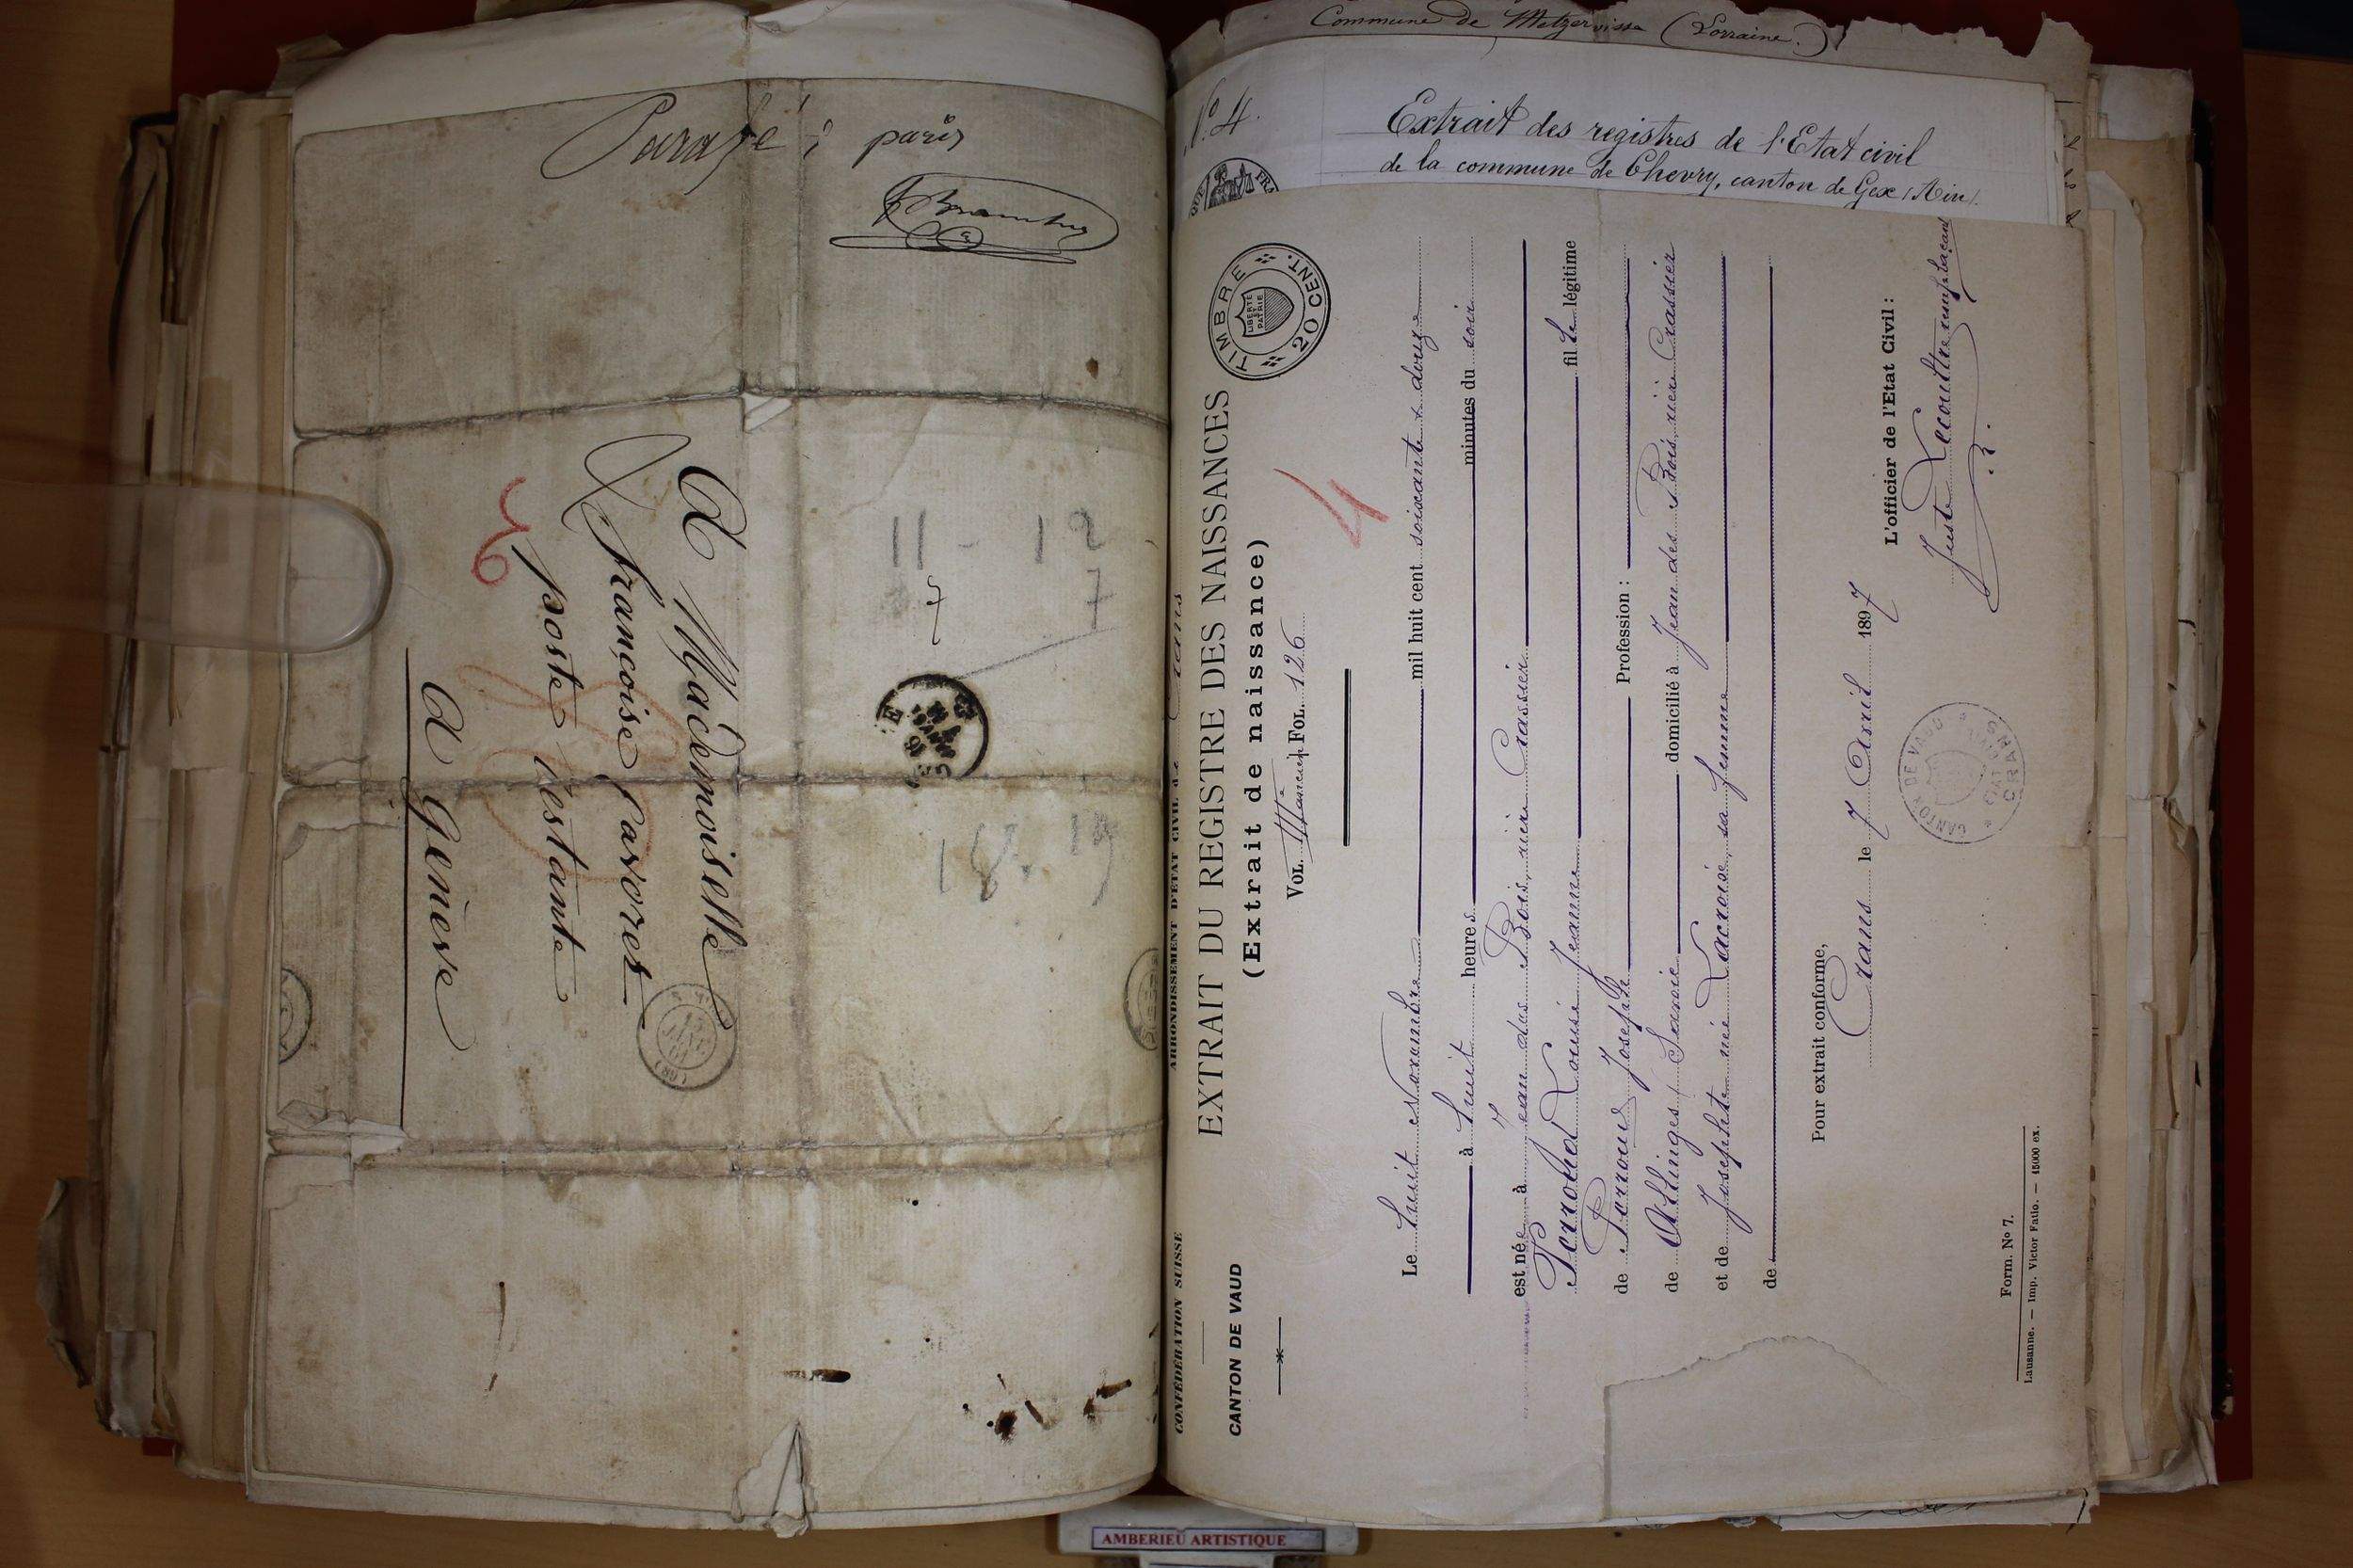 Parafé; paris
A Mademoiselle
françoise Pavoret
poste restante
A Genève
11 - 12
7 7
18. 19
Commune de Metzervisse (Lorraine.)
No. 4.
Extrait des registres de l'Etat civil
de la commune de Chevry, canton de Gex (Ain).
CONFÉDÉRATION SUISSE
ARRONDISSEMENT D'ÉTAT CIVIL de Crans
CANTON DE VAUD
EXTRAIT DU REGISTRE DES NAISSANCES
(Extrait de naissance)
TIMBRE 20 CENT.
LIBERTÉ ET PATRIE
VOL. FOL. 126
4
Le huit Novembre mil huit cent soixante & douze
à huit heures minutes du soir
est née à Jean des Bois, rière Crassier
Perroud Louise Jeanne fille légitime
de Perroud Joseph Profession :
de Allinges (Savoie domicilié à Jean des Bois rière Crassier
et de Josephte née Lacroix, sa femme
de
Pour extrait conforme,
Crans le 7 Avril 1897
L'officier de l'Etat Civil :
Juste Recoultre remplaçant
CANTON DE VAUD
CRANS
Form. No 7.
Lausanne. — Imp. Victor Fatio. — 15000 ex.
AMBERIEU ARTISTIQUE